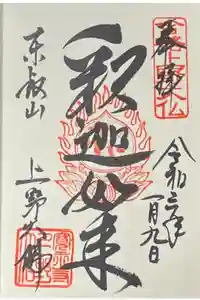 奉拝
令和三年
一月九日
釈迦如来
東叡山
上野大佛